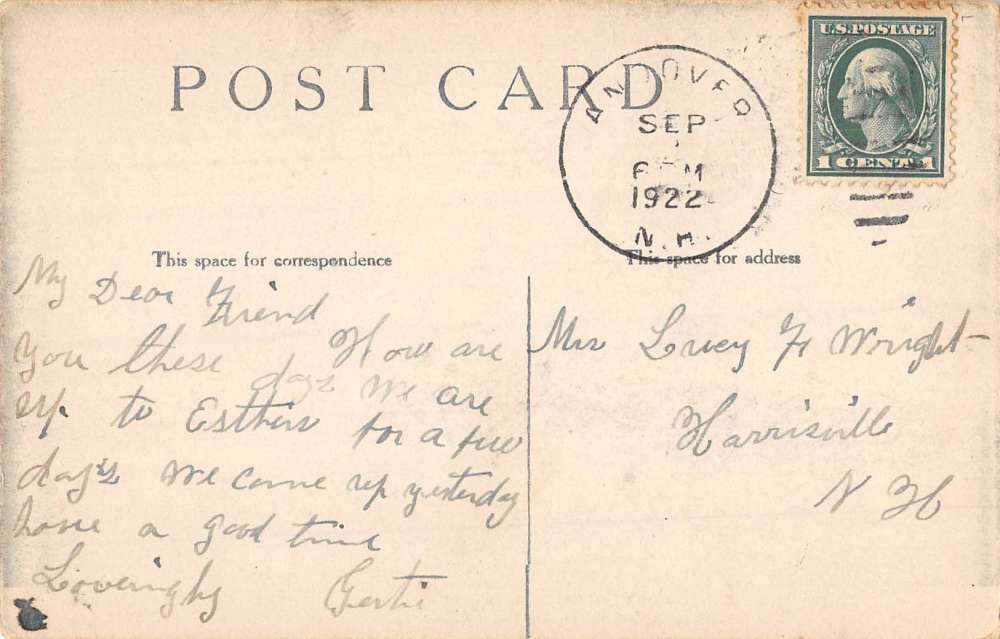 POST CARD
ANDOVER
SEP
6 M
1922
N.H.
U.S. POSTAGE
1 CENT 1
This space for correspondence
This space for address
My Dear Friend
How are
you these days We are
up to Esthers for a few
days We come up yesterday
have a good time
Loveingly Gertie
Mrs Lucy F Wright
Harrisville
N H